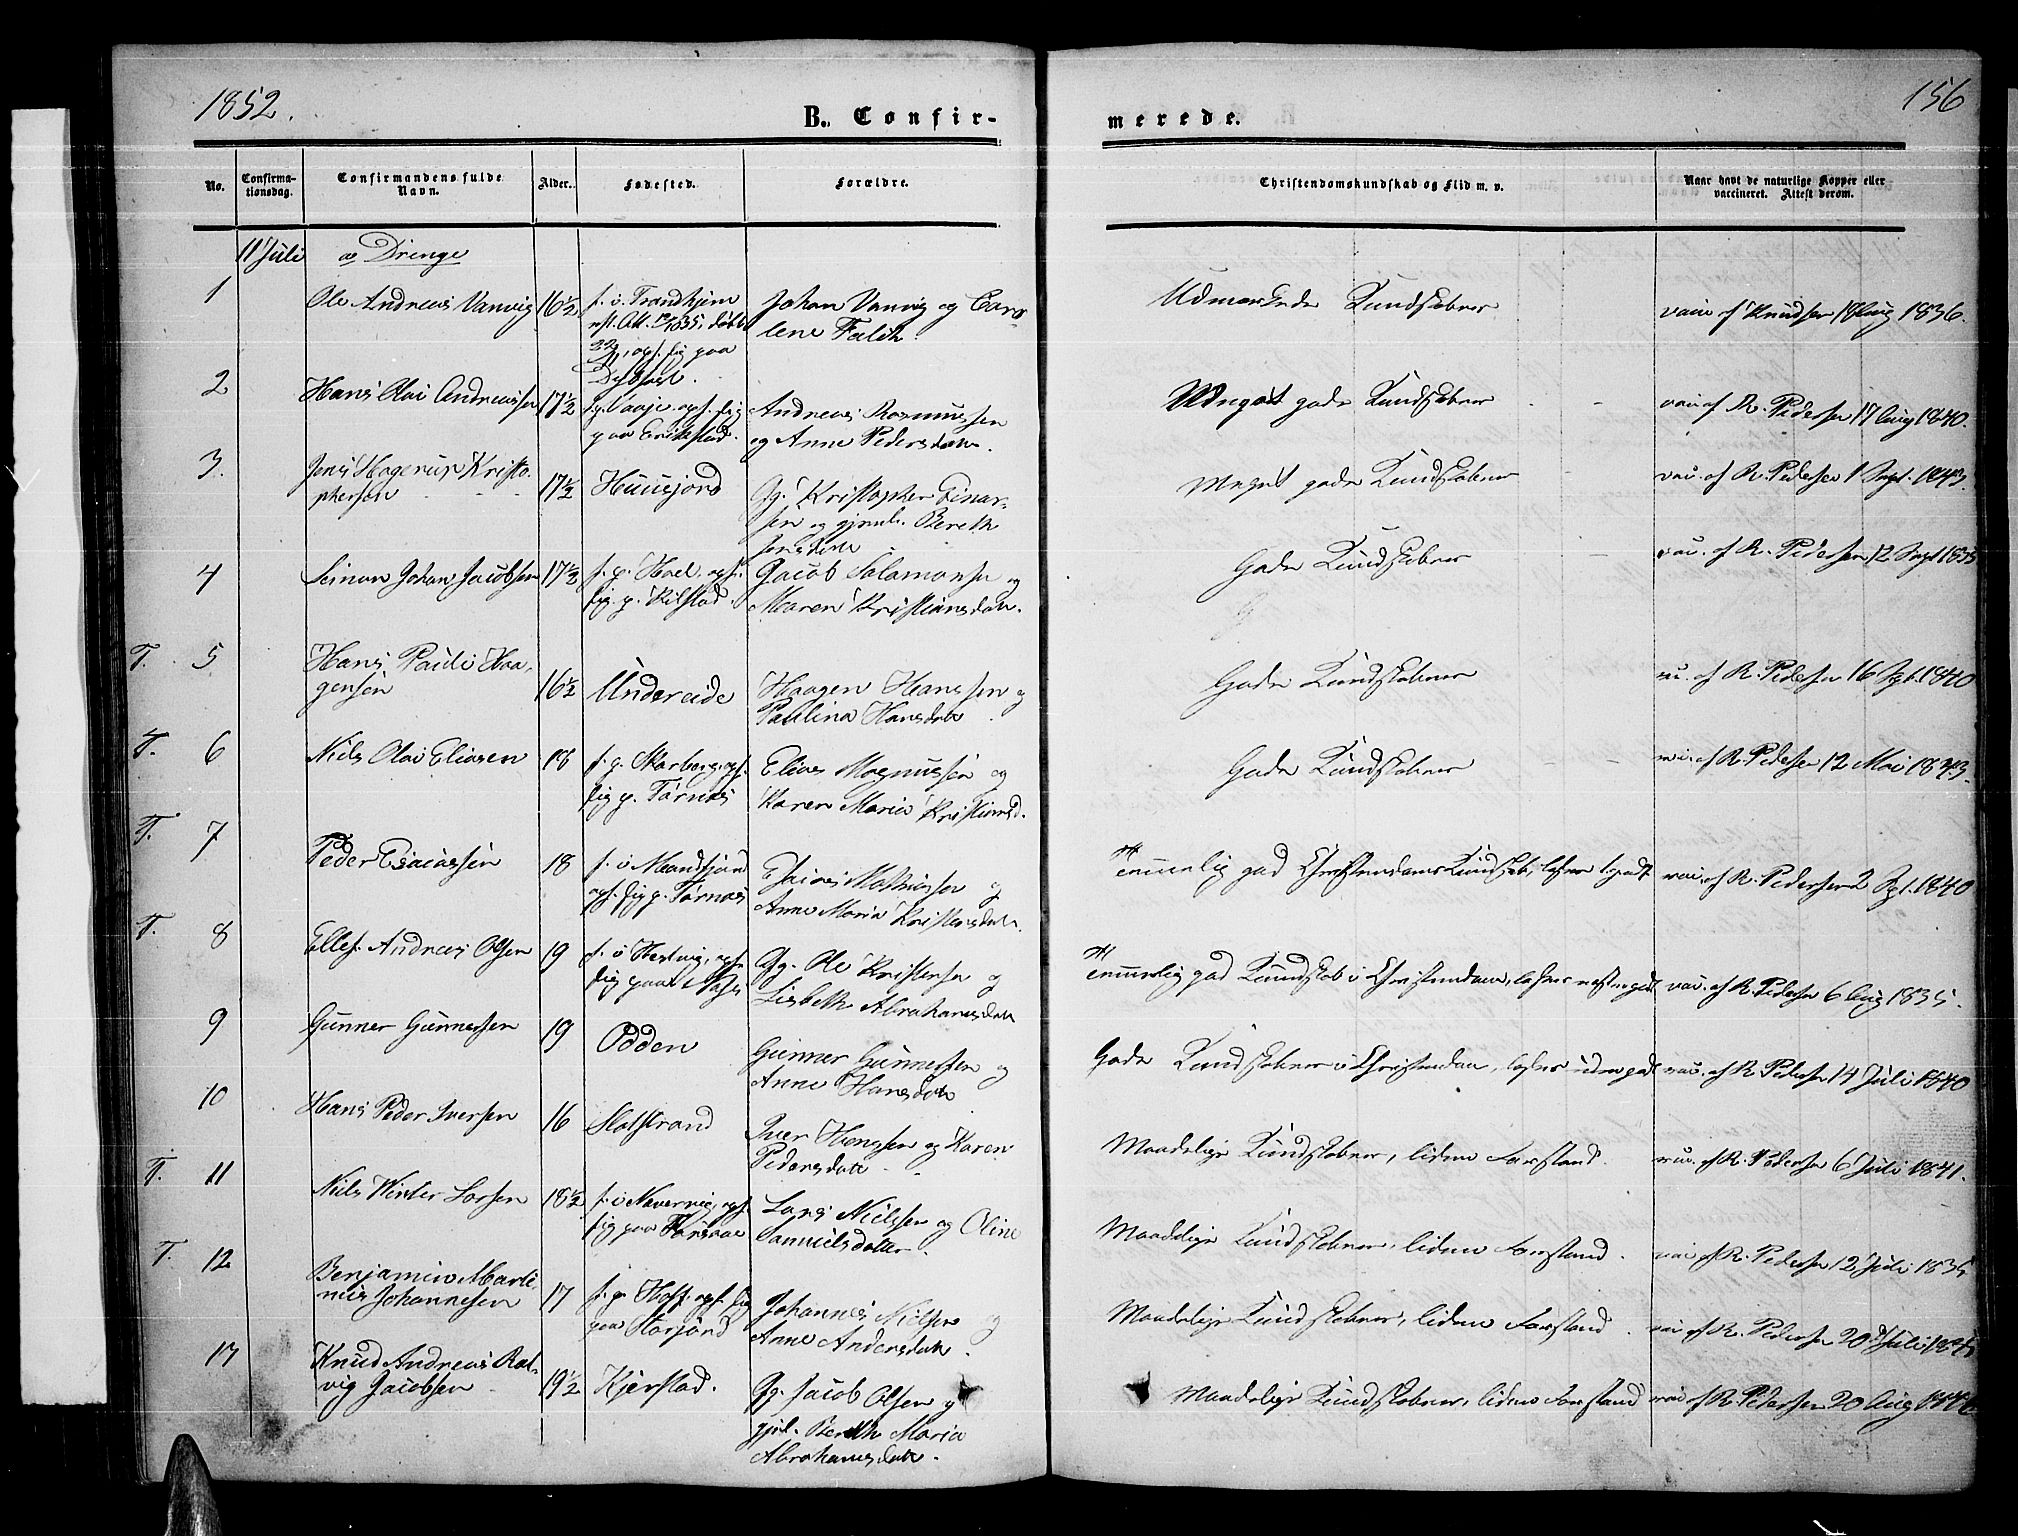 1852.
B. Confir-
merede.
156
No.
Confirma-
tionsdag.
Confirmandens fulde
Navn.
Alder.
Fødested.
Forældre.
Christendomskundskab og Flid m. v.
Naar havt de naturlige Kopper eller
vaccineret. Attest derom.
11 Juli
a Drenge
1
Ole Andreas Vanvig
16½
f. i Trondhjem
Johan Vanvig og Caro
lene Falch
Udmærkede Kundskaber
vacc. af Knudsen 18 Aug 1836.
2
Hans Olai Andreassen
17½
paa Erikstad.
Andreas Rasmussen
og Anne Pedersdatt.
Meget gode Kundskaber
vac. af R. Pedersen 17 Aug 1840.
3
Jens Hagerup Kristo-
phersen
17½
Huusjord
Gg. Kristopher Einar-
sen og gjml. Bereth
Jensdatt
Meget gode Kundskaber
vac. af R. Pedersen 1 Sept. 1843.
4
Johan Jacobsen
17½
f. p. Hoel, opf.
sig. p. Kilstad.
Jacob Salamonsen og
Maren Kristiansdatt.
Gode Kundskaber
vac. af R. Pedersen 12 Sept 1835
T. 5
Hans Pauli Haa-
gensen
16½
Undereide
Haagen Hanssen og
Paulina Hansdatt
Gode Kundskaber
vac. af R. Pedersen 16 Spt. 1840
T. 6
Niels Olai Eliasen
18
f. p. Skarberg, opf.
sig p. Tørnæs
Elias Magnussen og
Karen Maria Kristiansd.
Gode Kundskaber
vac. af R. Pedersen 12 Mai 1843.
T. 7
Peder Esaiassen
18
f. i Mandfjord
opf. sig p. Tørnæs
Esaias Mathiassen og
Anne Maria Kristensdatt.
Temmelig god Christendoms Kundskab, læser godt
vac. af R. Pedersen 2 Spt. 1840
T. 8
Ellef Andreas Olsen
19
f. i Hestvig, opf.
sig paa Næss
Gg. Ole Kristensen og
Lisbeth Abrahamsdatt
Temmelig god Kundskab i Christendom, læser næsten godt
vac. af R. Pedersen 6 Aug 1835.
9
Gunner Gunnersen
19
Odden
Gunner Gunnersen og
Anne Hansdatt
Gode Kundskaber i Christendom, læser uden godt
vac. af R. Pedersen 14 Juli 1840
10
Hans Peder Iversen
16
Slotstrand
Iver Hansen og Karen
Pedersdatt.
Maadelige Kundskaber, liden Forstand.
vac. af R. Pedersen 6 Juli 1841.
T. 11
Niels Winter Larsen
18½
f. i Navervig, opf.
sig paa
Lars Nielssen og Oline
Samuelsdatter.
Maadelige Kundskaber, liden Forstand.
vac. af R. Pedersen 12 Juli 1835
T. 12
Benjamin Marti-
nus Johannesen
17
f. p. Hoff. opf. sig
paa Storjord
Johannes Nielsen og
Anne Andersdatt.
Maadelige Kundskaber, liden Forstand.
vac. af R. Pedersen 20 Juli
13
Knud Andreas Rat-
vig Jacobsen
19½
Kjerstad.
Gg. Jacob Olsen og
gjel. Bereth Maria
Abrahamsdatt.
Maadelige Kundskaber, liden Forstand
vac. af R. Pedersen 20 Aug